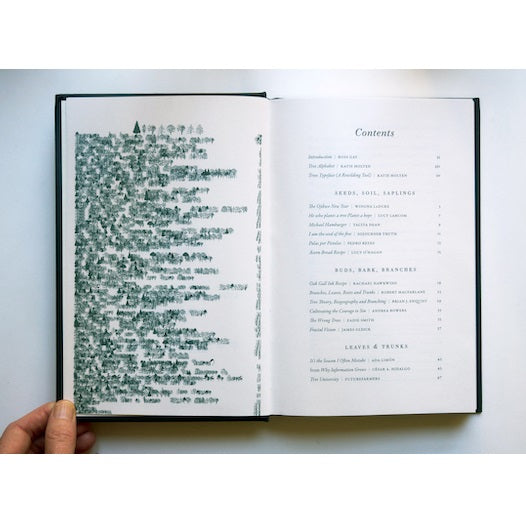 Contents
Introduction | ROSS GAY
Tree Alphabet | KATIE HOLTEN
Trees Typeface (A Rewilding Tool) | KATIE HOLTEN
SEEDS, SOIL, SAPLINGS
The Ojibwe New Year | WINONA LADUKE 1
He who plants a tree Plants a hope | LUCY LARCOM
Michael Hamburger | TACITA DEAN
I am the seed of the free | SOJOURNER TRUTH
Palas por Pistolas | PEDRO REYES
Acorn Bread Recipe | LUCY O'HAGAN
BUDS, BARK, BRANCHES
Oak Gall Ink Recipe | RACHAEL HAWKWIND
Branches, Leaves, Roots and Trunks | ROBERT MACFARLANE
Tree Theory, Biogeography and Branching | BRIAN J. ENQUIST
Cultivating the Courage to Sin | ANDREA BOWERS
The Wrong Trees | ZADIE SMITH
Fractal Vision | JAMES GLEICK 37
LEAVES & TRUNKS
It's the Season I Often Mistake | ADA LIMÓN
Seeds: Why Information Grows | CÉSAR A. HIDALGO
Tree University | FUTUREFARMERS 47